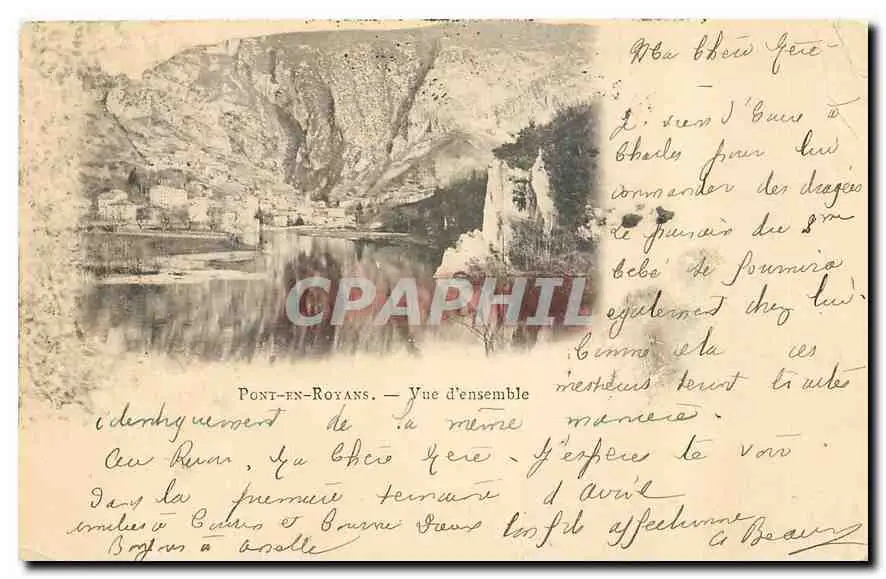 Ma Chère Mère -
Je viens d'écrire à
Charles pour lui
commander des dragées
Le parrain du 3me
bébé se fournira
également chez lui.
Comme cela ces
messieurs seront traités
CPARAMA
PONT-EN-ROYANS. — Vue d'ensemble
identiquement de la même manière.
Au Revoir, Ma Chère Mère - J'espère te voir
Dans la première semaine d'avril
amitiés à et
à ton fils affectionné